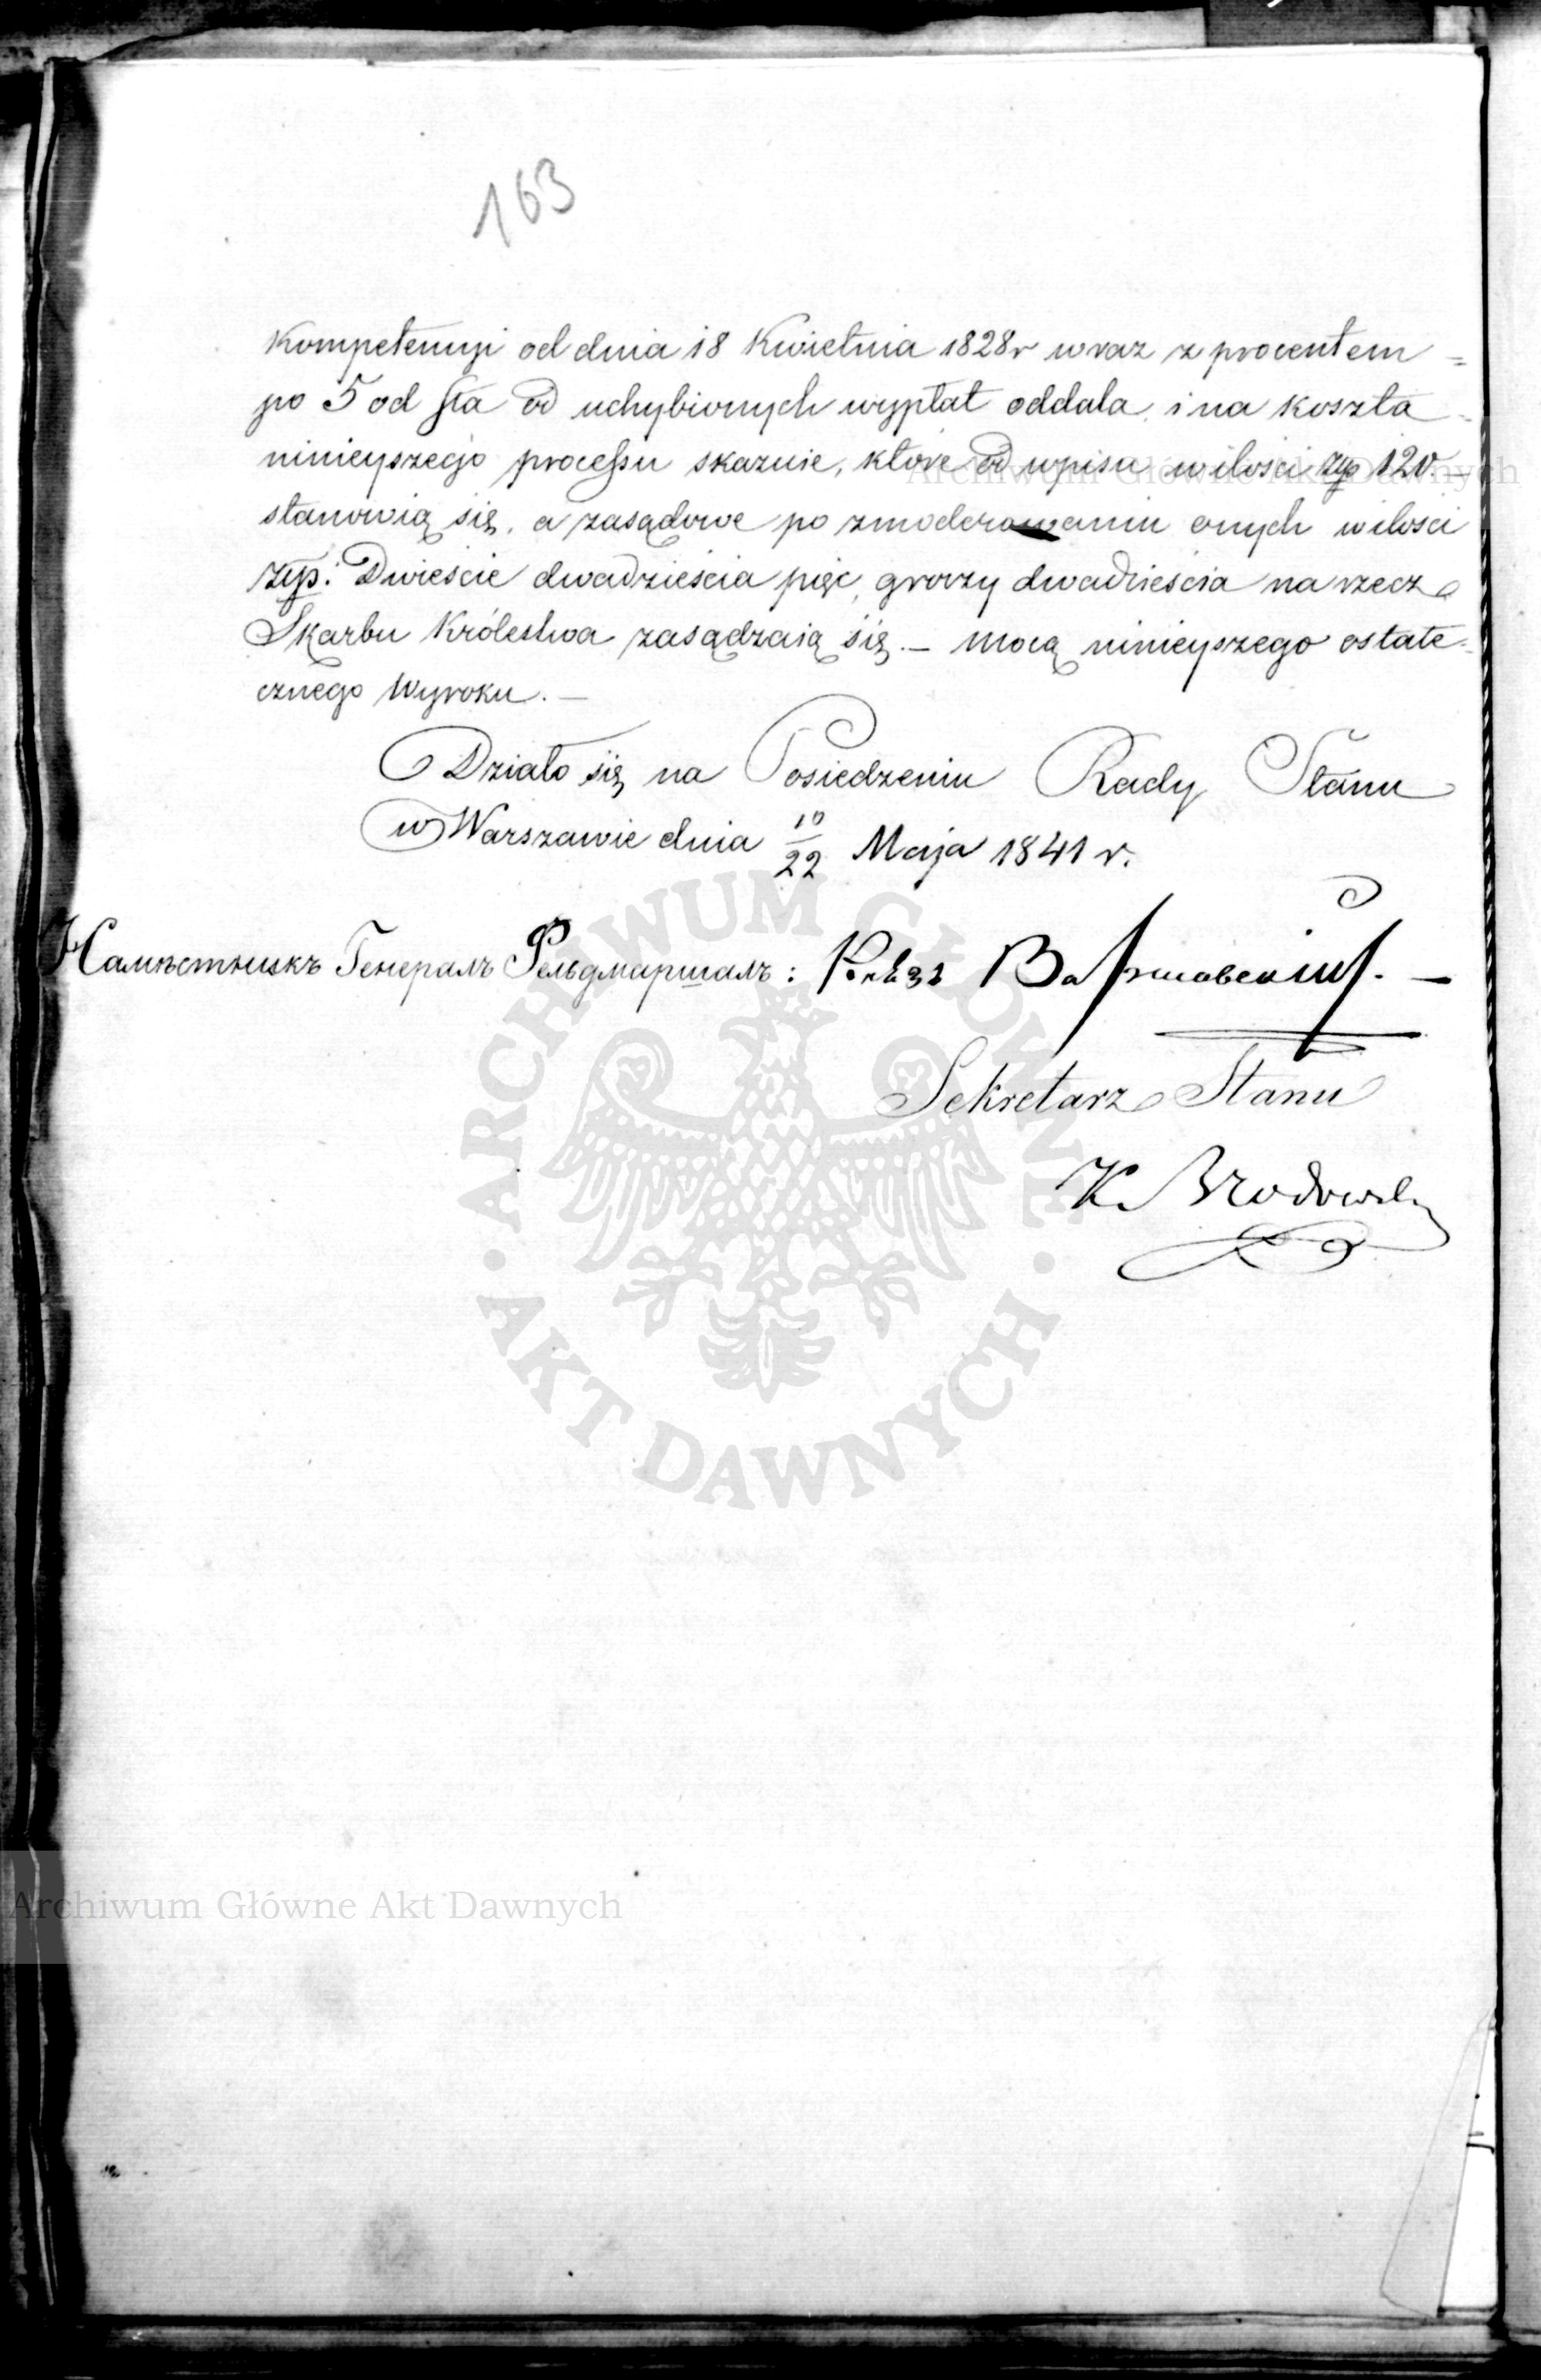 163
Kompetencyi od dnia 18 Kwietnia 1828 r wraz z procentem =
po 5 od sta od uchybionych wypłat oddala, i na koszta
ninieyszego processu skazuie, które od wpisu w ilości złp 120. –
stanowią się, a zasądowe po zmoderowaniu onych w ilości
złp: Dwieście dwadzieścia pięć, groszy dwadzieścia na rzecz
Skarbu Królestwa zasądzaią się. – mocą ninieyszego ostate-
cznego Wyroku. –
Działo się na Posiedzeniu Rady Stanu
w Warszawie dnia 10/22 Maja 1841 r.
Намѣстникъ Генералъ Фельдмаршалъ: Князь Варшавскій. –
Sekretarz Stanu
K Brodowski
ARCHIWUM GŁÓWNE • AKT DAWNYCH •
Archiwum Główne Akt Dawnych
Archiwum Główne Akt Dawnych